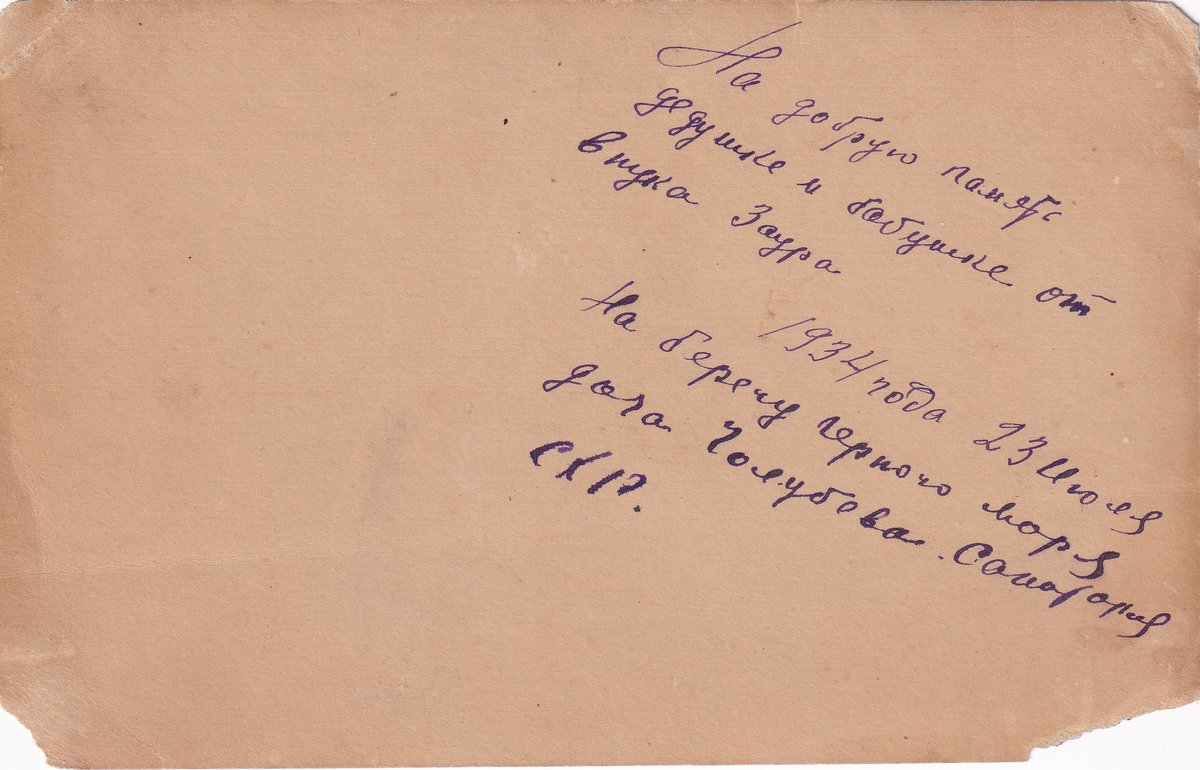 На добрую память
дедушке и бабушке от
внука Заура
1934 года 23 Июля
На берегу Черного моря
дача Голубева. Санатория
СКР.